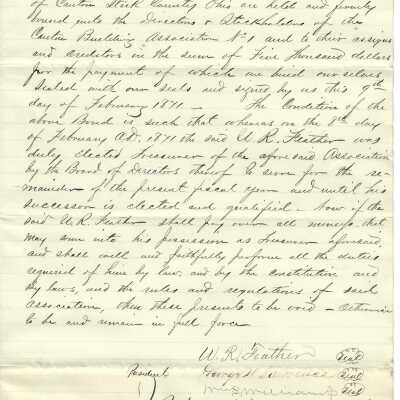 of Canton Stark County Ohio are held and firmly
bound unto the Directors & Stockholders of the
Canton Building Association No 1 and to their assigns
and creditors in the sum of Five Thousand dollars
for the payment of which we bind our selves
Sealed with our seals and signed by us this 9th
day of February 1871 — The Condition of the
above Bond is such that whereas on the 8th day
of February A.D. 1871 the said W R. Feather was
duly elected Treasurer of the aforesaid Association
by the Board of Directors thereof to serve for the re-
mainder of the present fiscal year and until his
successor is elected and qualified — Now if the
said W. R. Feather shall pay over all moneys that
may come into his possession as Treasurer aforesaid,
and shall well and faithfully perform all the duties
required of him by law, and by the constitution and
by laws, and the rules and regulations of said
Association, then these presents to be void — Otherwise
to be and remain in full force
W. R. Feather Seal
President Seal
Seal